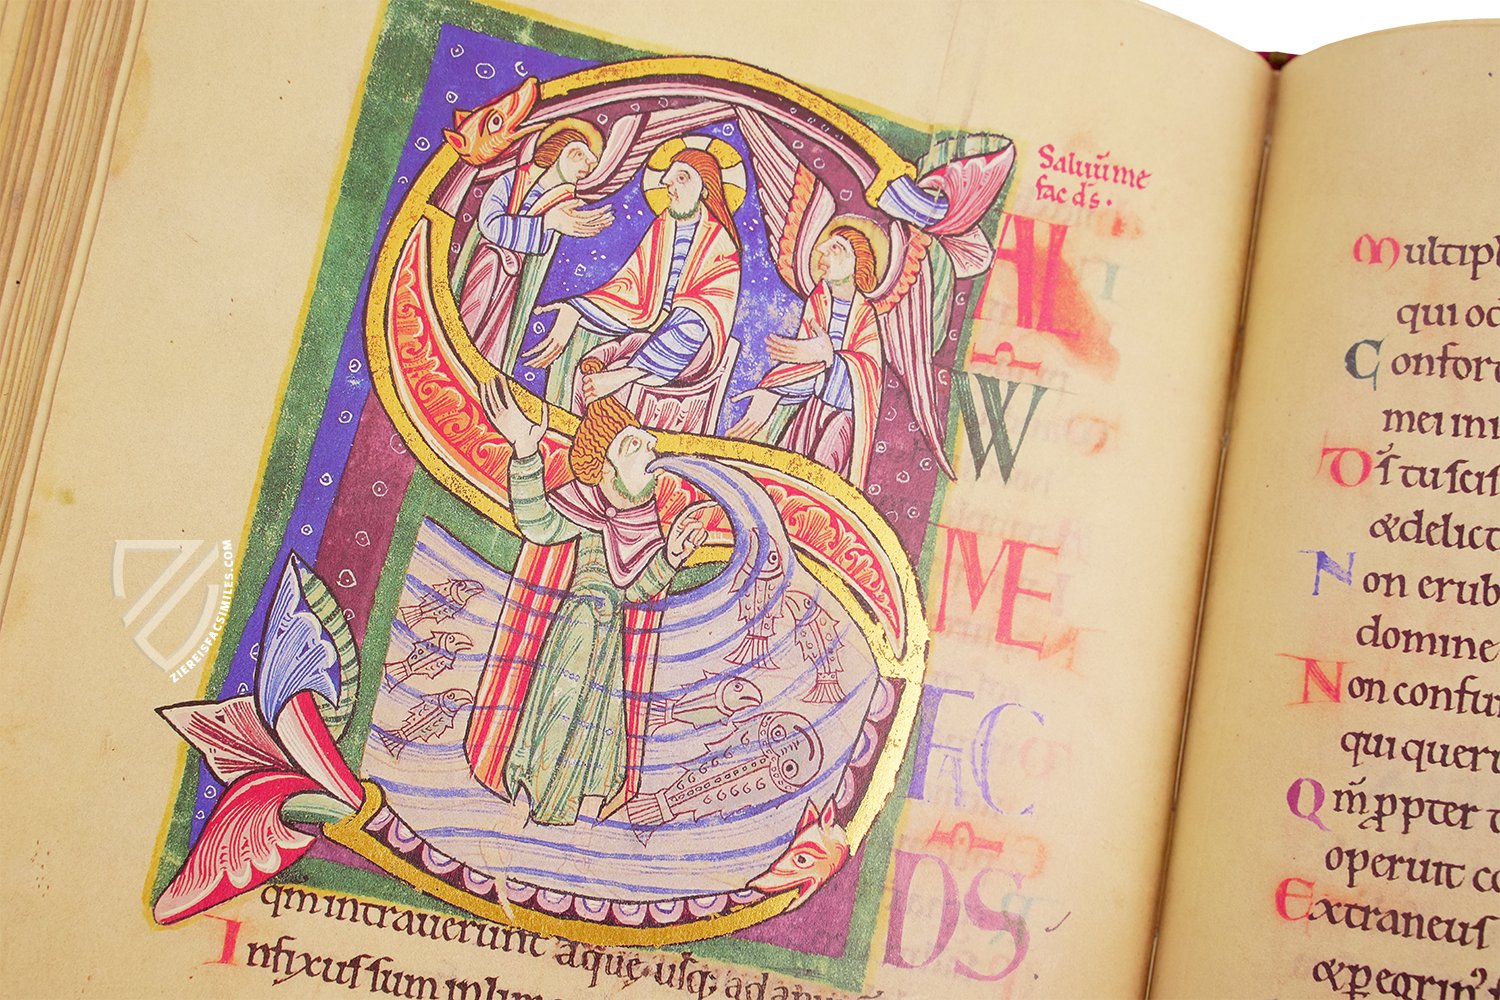 Saluū me
fac d̄s.
S
AL
W
ME
FAC
DS
qm intrauerunt aque usq; ad
Infixus sum in
Multipl
qui od
Confort
mei ini
Ds̄ tu scis
&delict
Non erub
domine
Non confun
qui quer
Qm̄ ppter t
operuit co
Extraneus
&peregrin
ZIEREISFACSIMILES.COM